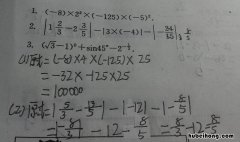 1. (-8)×2²×(-125)×(-5)².
2. |1 2/3 - 2 3/5| - |3×(-4)| - |-
3. (√3-1)⁰+sin45°-2⁻¹.
(1)原式=(-8)×4×(-125)×25
=-32×-125×25
=100000
(2)原式=|5/3-13/5|-|-12|-|-8/5|
=|-8/3|-12-8/5=8/3-12 8/5
hubeihong.com